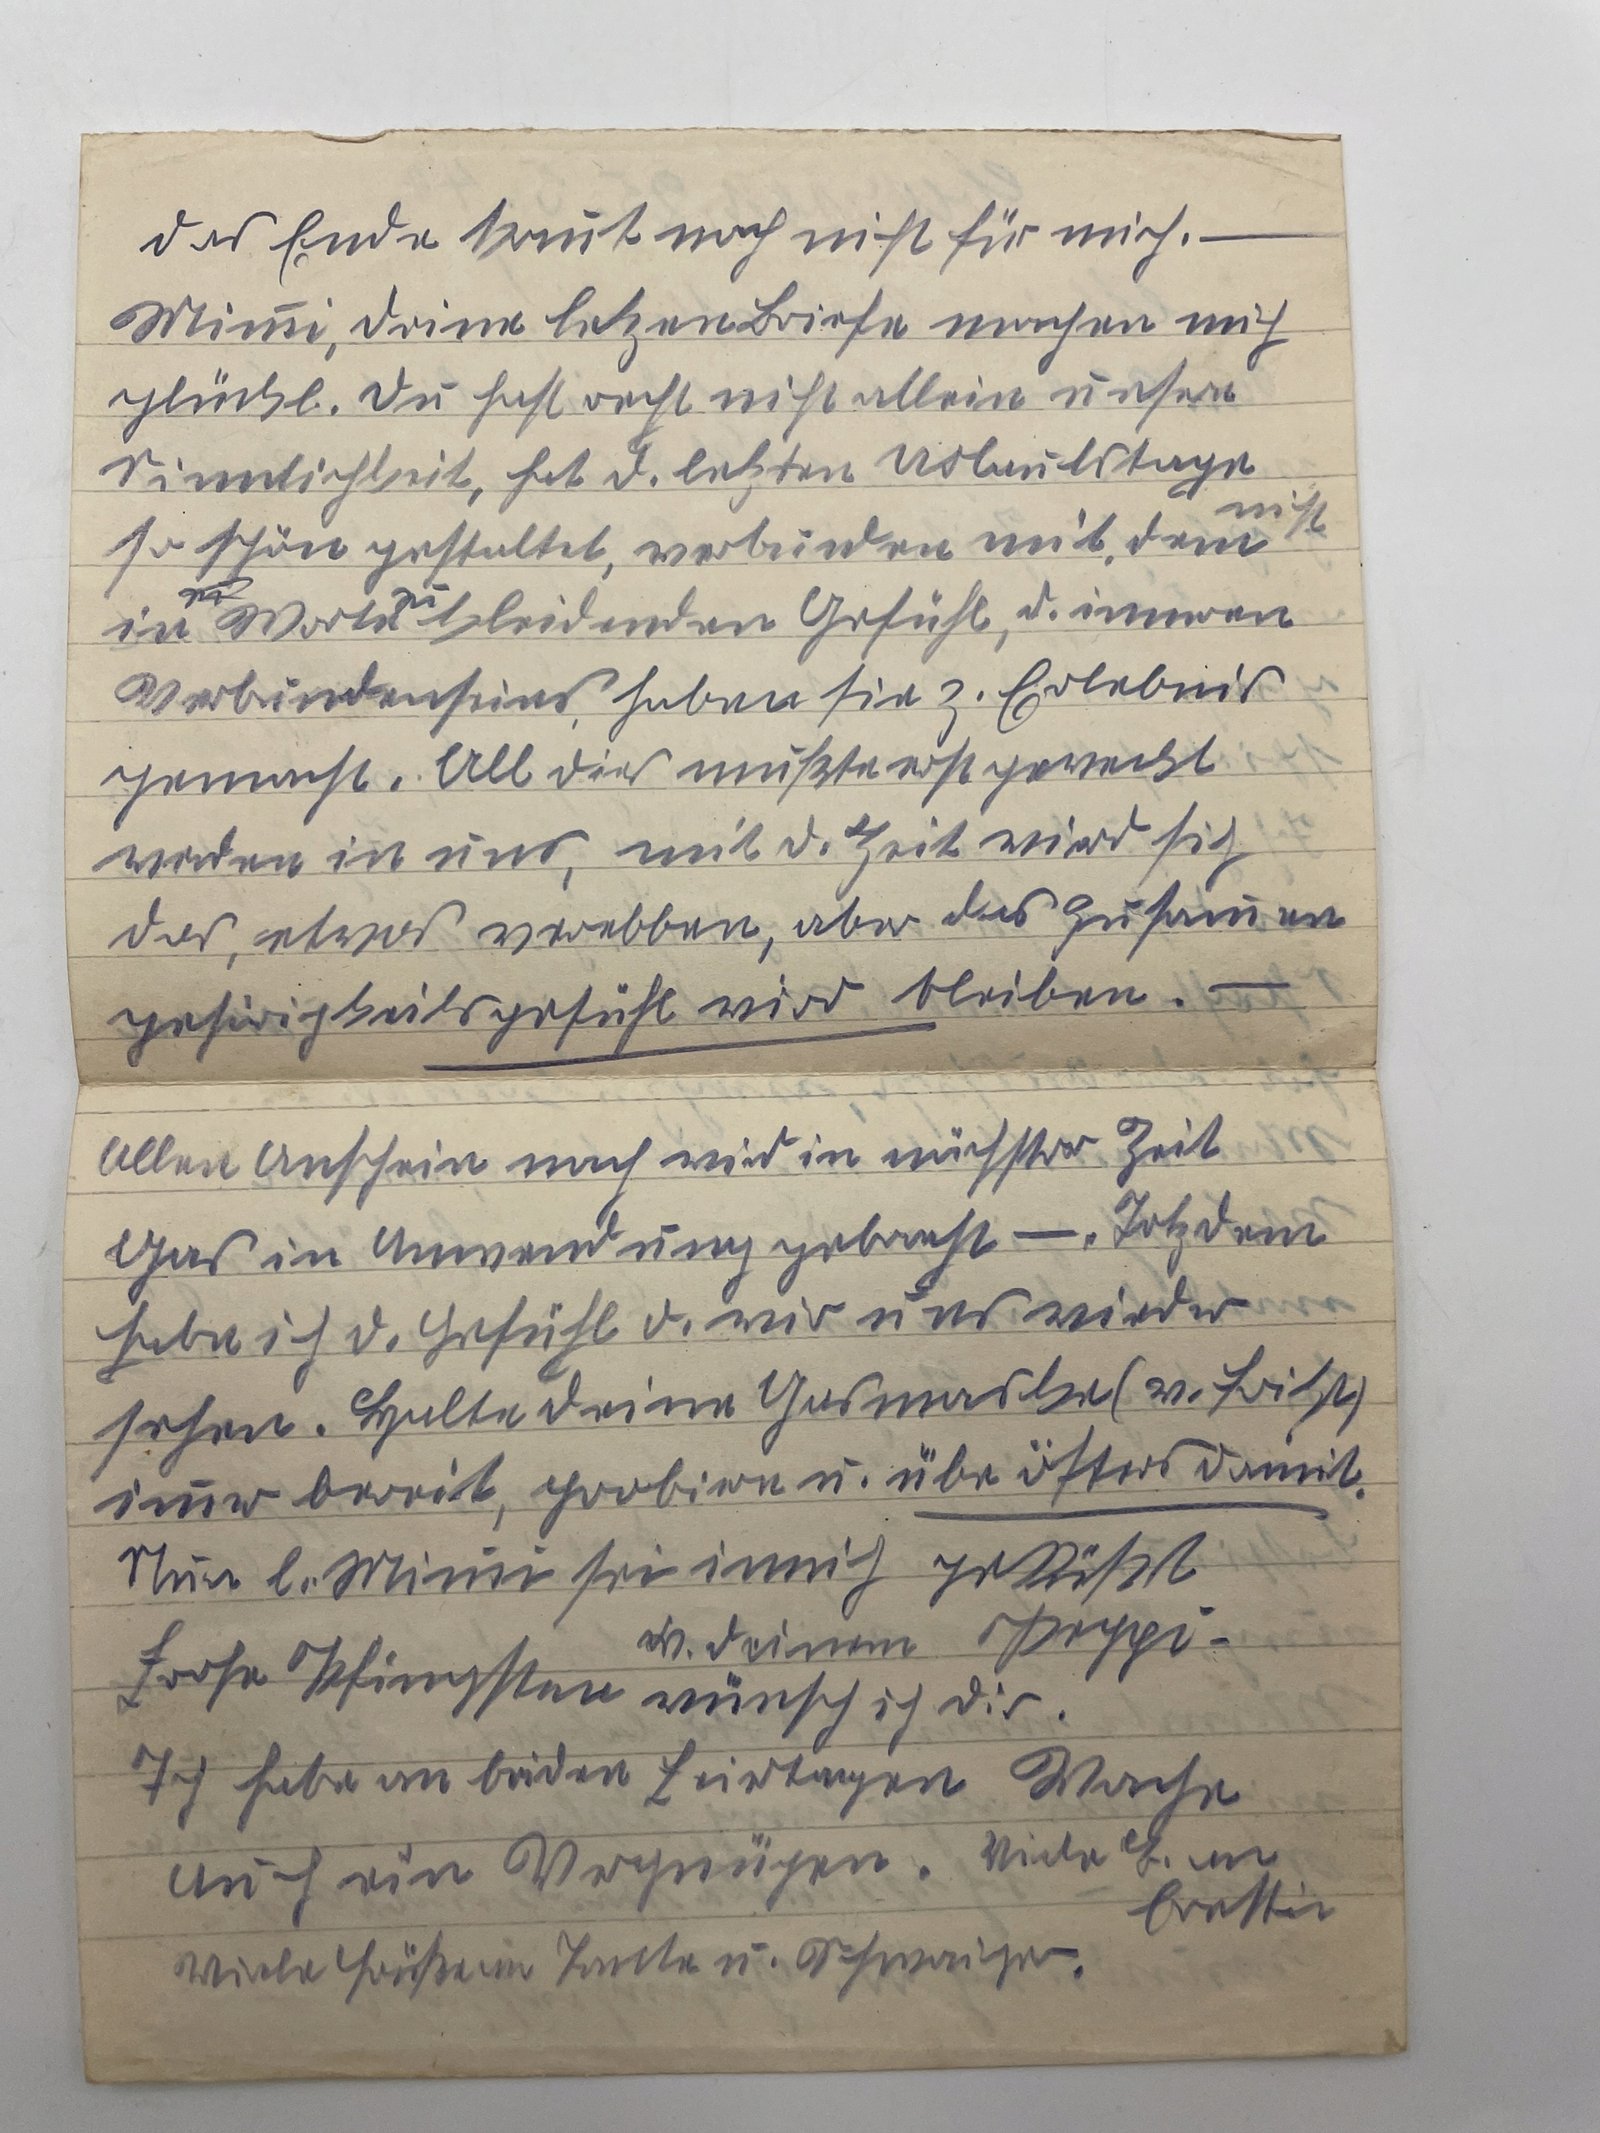 das Ende kom̅t noch nicht für mich. —
Mim̅i, deine letzen Briefe machen mich
glückl. Du hast recht nicht allein unsere
Sinnlichkeit, hat d. letzten Urlaubstage
so schön gestaltet, verbunden mit, dem nicht
in Worte zu kleidenden Gefühl, d. inneren
Verbundenseins, haben sie z. Erlebnis
gemacht. All dies mußte erst geweckt
werden in uns, mit d. Zeit wird sich
das, etwas verebben, aber das Zusam̅en
gehörigkeitsgefühl wird bleiben. —
Allen Anschein nach wird in nächster Zeit
Gas in Anwendung gebracht —. Trotzdem
habe ich d. Gefühl d. wir uns wieder
sehen. Halte deine Gasmaske (v. Fritz)
im̅er bereit, probiere u. übe öfters damit.
Nun l. Mim̅i sei innich geküßt
v. deinem Peppi -
Frohe Pfingsten wünsch ich dir.
Ich habe an beiden Feiertagen Wache
Auch ein Vergnügen. Viele G. an
Viele Grüße an Tante u. Schwaiger.